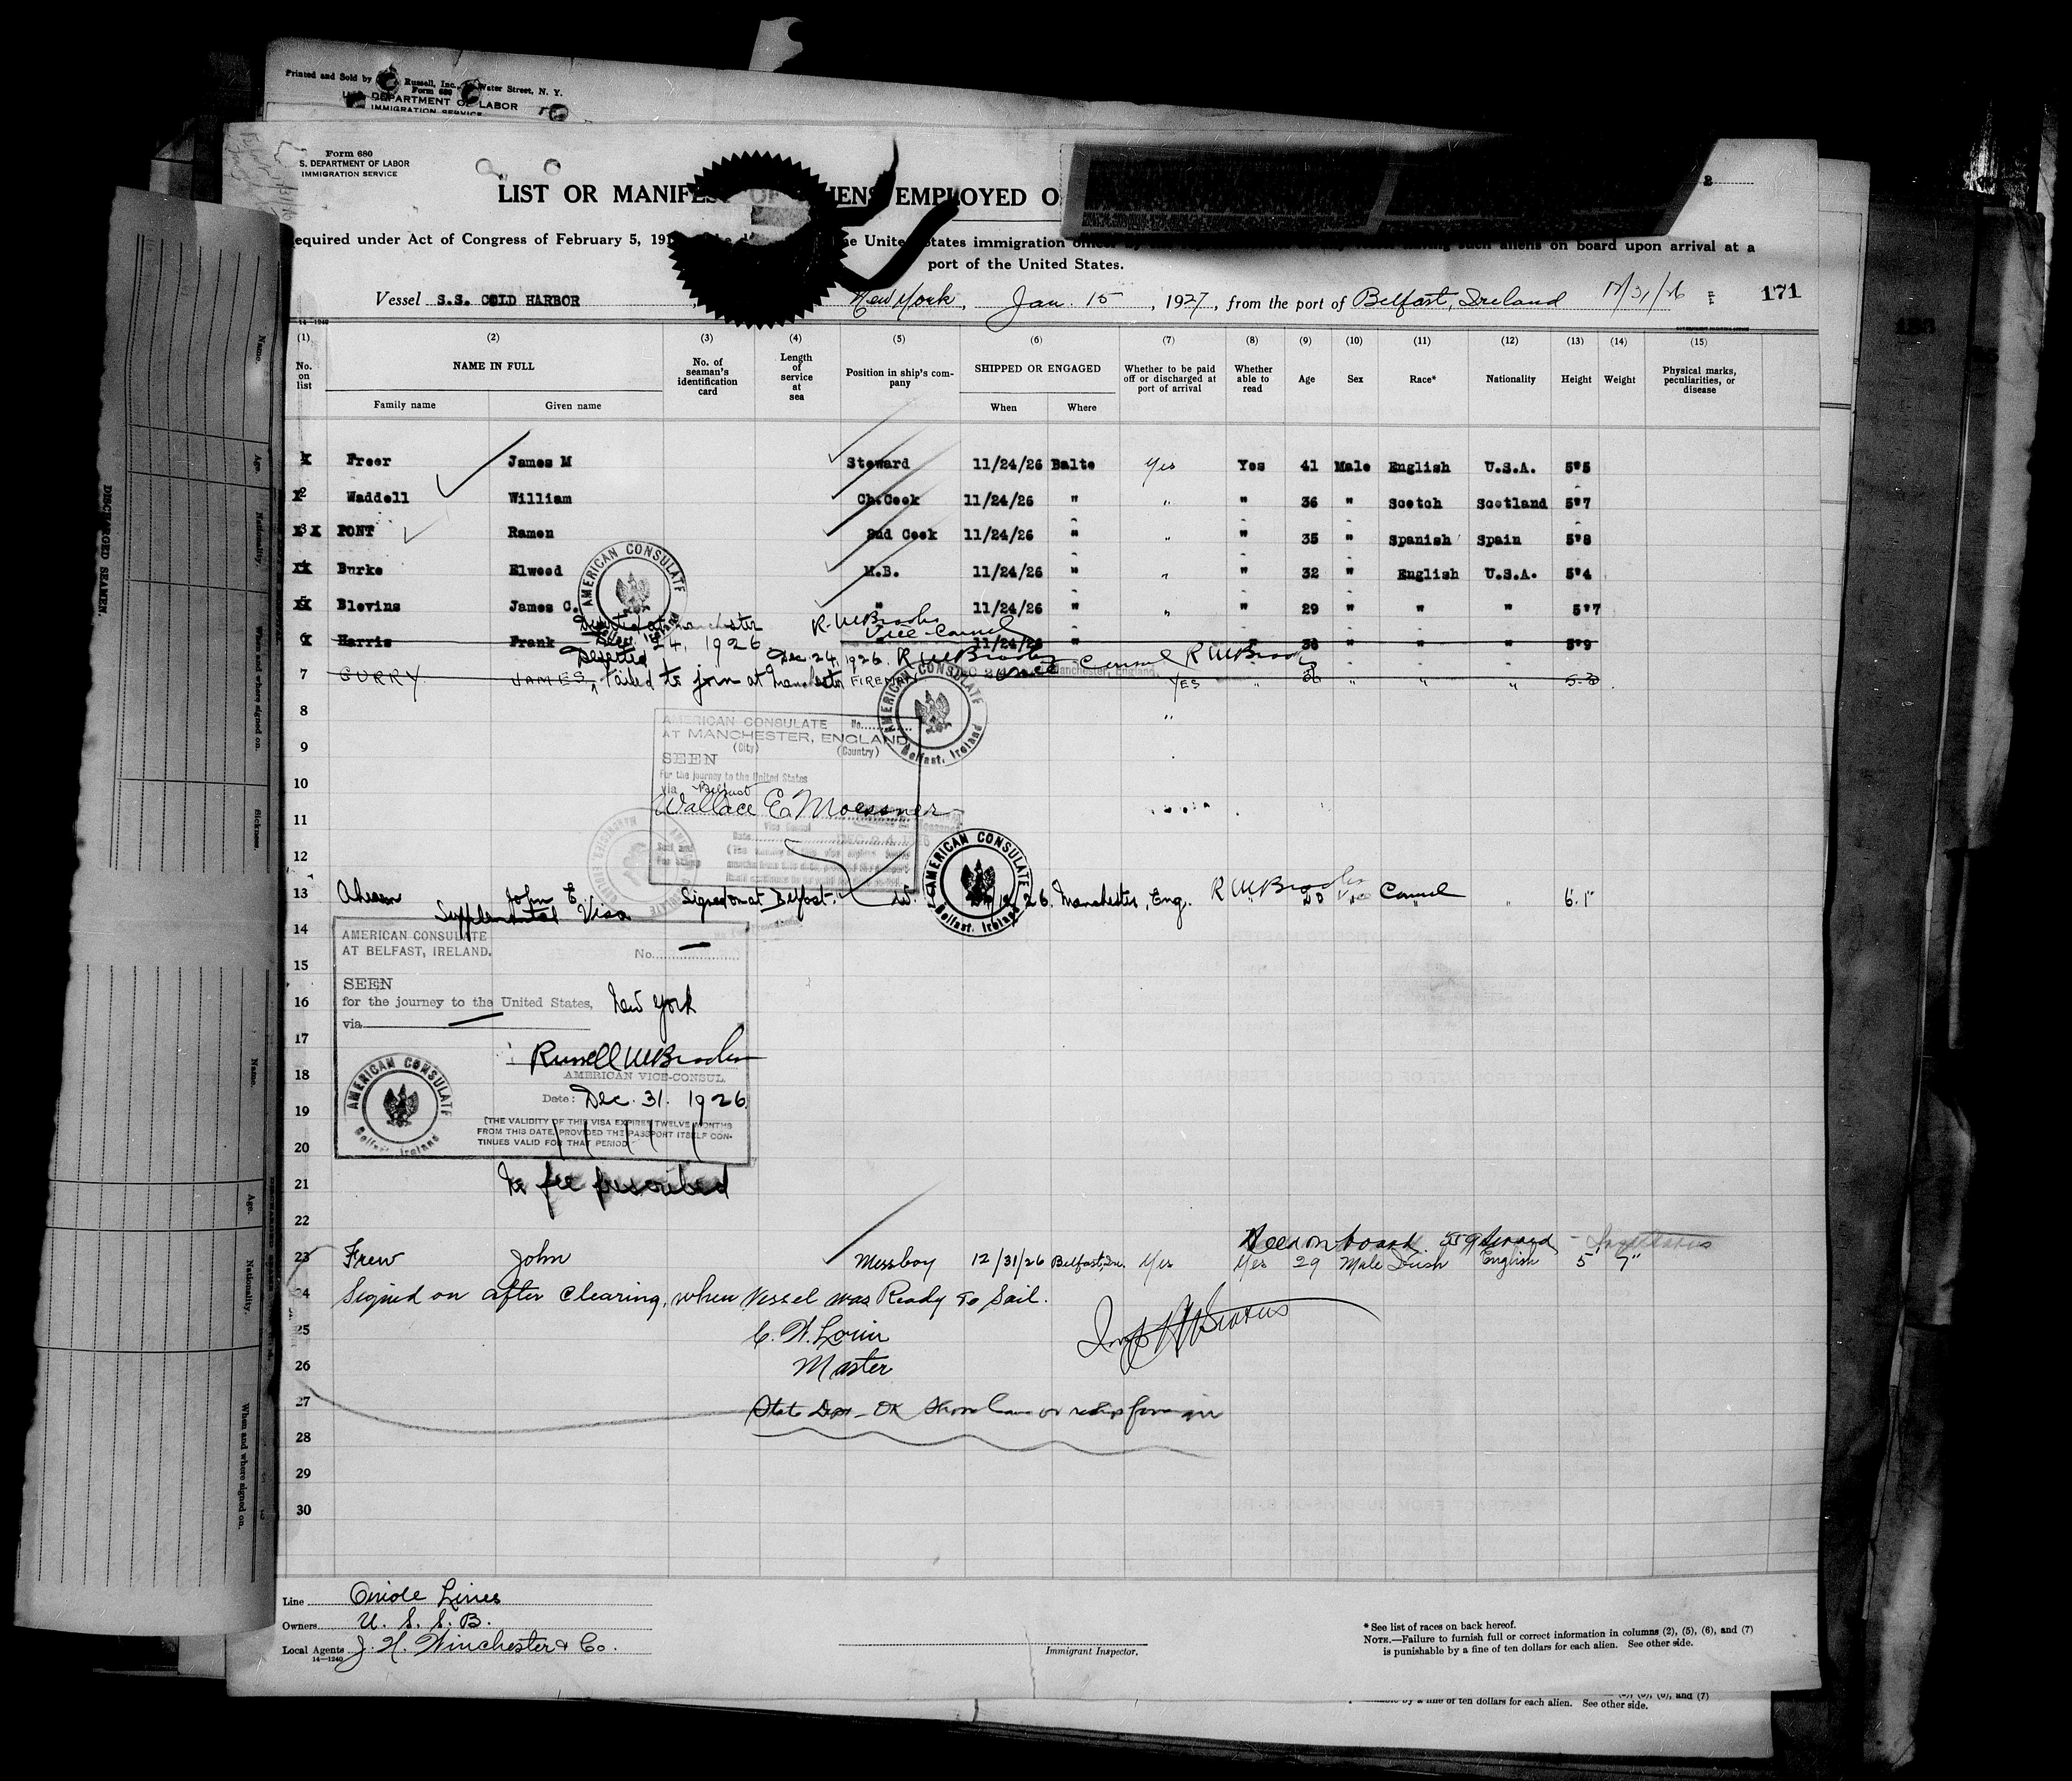 Printed and Sold by Russell, Inc., Water Street, N. Y.
Form 680
DEPARTMENT OF LABOR
IMMIGRATION SERVICE
Form 680
S. DEPARTMENT OF LABOR
IMMIGRATION SERVICE
LIST OR MANIFES OF ALIENS EMPLOYED O
equired under Act of Congress of February 5, 191 United States immigration officer such aliens on board upon arrival at a
port of the United States.
Vessel S.S. COLD HARBOR New York, Jan. 15, 1927, from the port of Belfast, Ireland 12/31/26 171
14—1240
(1) (2) (3) (4) (5) (6) (7) (8) (9) (10) (11) (12) (13) (14) (15)
No. on list NAME IN FULL No. of seaman's identification card Length of service at sea Position in ship's company SHIPPED OR ENGAGED Whether to be paid off or discharged at port of arrival Whether able to read Age Sex Race* Nationality Height Weight Physical marks, peculiarities, or disease
Family name Given name When Where
Freer James M Steward 11/24/26 Balto Yes Yes 41 Male English U.S.A. 5'5
2 Waddell William Ch.Cook 11/24/26 " " " 36 " Scotch Scotland 5'7
3 X PONT Ramon 2nd Cook 11/24/26 " " " 35 " Spanish Spain 5'8
4 Burke Elwood M.B. 11/24/26 " " " 32 " English U.S.A. 5'4
5 Blevins James C. " 11/24/26 " " " 29 " " " 5'7
Deserted at Manchester R. W Brooks
Dec. 24, 1926 Vice-Consul
6 Harris Frank 11/24/26 " " 38 " " " 5'9
Deserted Dec. 24, 1926. R W Brooks Vice Consul R W Brooks
7 CURRY JAMES, failed to join at Manchester FIREMAN Manchester, England. YES " 36 " " "
8 "
9
10
11
12
AMERICAN CONSULATE Belfast, Ireland
AMERICAN CONSULATE Belfast, Ireland
AMERICAN CONSULATE No.
AT MANCHESTER, ENGLAND
(City) (Country)
SEEN
For the journey to the United States
via Belfast
Wallace E. Moessner
Vice Consul
Date DEC 24 1926
AMERICAN CONSULATE Belfast, Ireland
13 Ahearn John E. Signed on at Belfast. 26. Manchester, Eng. R W Brooks Vice Consul " 6'.1"
Supplemental Visa
14
15
16
17
18
19
20
21
22
AMERICAN CONSULATE
AT BELFAST, IRELAND. No.
SEEN
for the journey to the United States, New York
via
Russell W Brooks
AMERICAN VICE-CONSUL.
Date: Dec. 31. 1926.
(THE VALIDITY OF THIS VISA EXPIRES TWELVE MONTHS
FROM THIS DATE, PROVIDED THE PASSPORT ITSELF CON-
TINUES VALID FOR THAT PERIOD
AMERICAN CONSULATE Belfast, Ireland
No fee prescribed
Held on board
23 Frew John Messboy 12/31/26 Belfast, Ire. Yes Yes 29 Male Irish English 5' 7"
24 Signed on after clearing, when Vessel was Ready To Sail.
25
26 Master
27 State Dept - OK
28
29
30
Line Oriole Lines
Owners U. S. S. B.
Local Agents J. H. Winchester & Co.
14—1240
Immigrant Inspector.
* See list of races on back hereof.
NOTE.—Failure to furnish full or correct information in columns (2), (5), (6), and (7)
is punishable by a fine of ten dollars for each alien. See other side.
by a fine of ten dollars for each alien. See other side.
DISCHARGED SEAMEN.
Name.
Age.
Nationality.
When and where signed on.
Sickness.
Name.
Age.
Nationality.
When and where signed on.